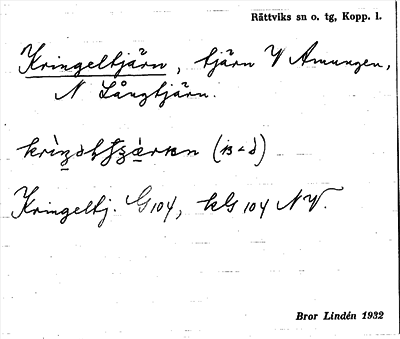 Rättviks sn o. tg, Kopp. l.
Kringeltjärn, tjärn V Amungen,
N Långtjärn.
Kringeltj. G104, kG 104 NV.
Bror Lindén 1932